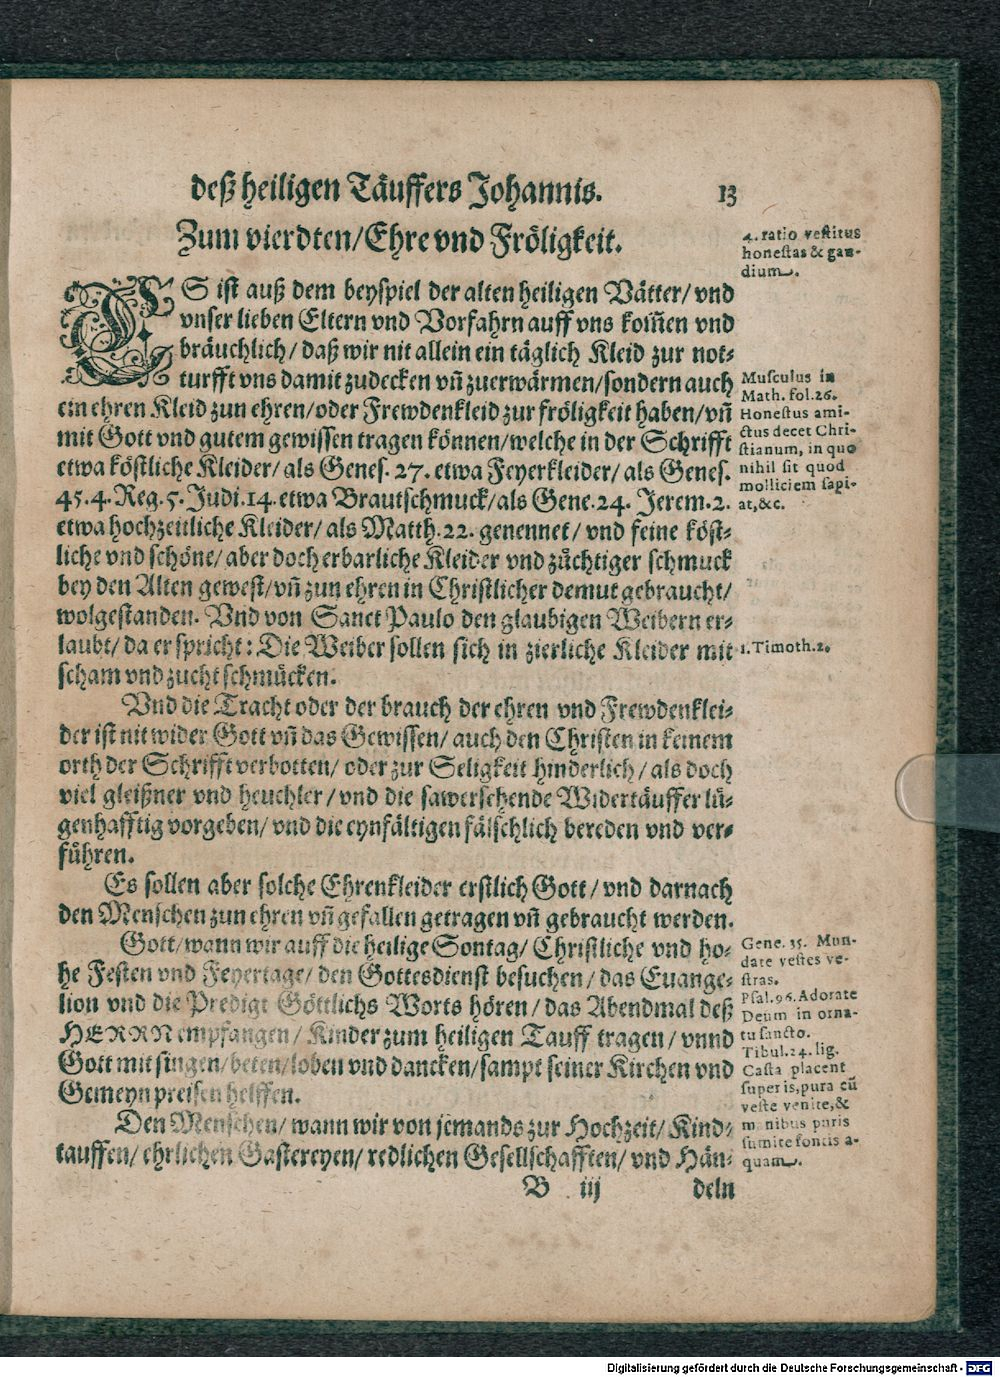 deß heiligen Täuffers Johannis. 13
Zum vierdten/ Ehre vnd Fröligkeit.
ES ist auß dem beyspiel der alten heiligen Vätter/ vnd
vnser lieben Eltern vnd Vorfahrn auff vns kom̃en vnd
bräuchlich/ daß wir nit allein ein täglich Kleid zur not-
turfft vns damit zudecken vñ zuerwärmen/ sondern auch
ein ehren Kleid zun ehren/ oder Frewdenkleid zur fröligkeit haben/ vñ
mit Gott vnd gutem gewissen tragen können/ welche in der Schrifft
etwa köstliche Kleider/ als Genes. 27. etwa Feyerkleider/ als Genes.
45. 4. Reg. 5. Judi. 14. etwa Brautschmuck/ als Gene. 24. Jerem. 2.
etwa hochzeitliche Kleider/ als Matth. 22. genennet/ vnd feine köst-
liche vnd schöne/ aber doch erbarliche Kleider vnd züchtiger schmuck
bey den Alten gewest/ vñ zun ehren in Christlicher demut gebraucht/
wolgestanden. Vnd von Sanct Paulo den glaubigen Weibern er-
laubt/ da er spricht: Die Weiber sollen sich in zierliche Kleider mit
scham vnd zucht schmücken.
Vnd die Tracht oder der brauch der ehren vnd Frewdenklei-
der ist nit wider Gott vñ das Gewissen/ auch den Christen in keinem
orth der Schrifft verbotten/ oder zur Seligkeit hinderlich/ als doch
viel gleißner vnd heuchler/ vnd die sawersehende Widertäuffer lü-
genhafftig vorgeben/ vnd die eynfältigen fälschlich bereden vnd ver-
führen.
Es sollen aber solche Ehrenkleider erstlich Gott/ vnd darnach
den Menschen zun ehren vñ gefallen getragen vñ gebraucht werden.
Gott/ wann wir auff die heilige Sontag/ Christliche vnd ho-
he Festen vnd Feyertage/ den Gottesdienst besuchen/ das Euange-
lion vnd die Predigt Göttlichs Worts hören/ das Abendmal deß
HERRN empfangen/ Kinder zum heiligen Tauff tragen/ vnnd
Gott mit singen/ beten/ loben vnd dancken/ sampt seiner Kirchen vnd
Gemeyn preisen helffen.
Den Menschen/ wann wir von jemands zur Hochzeit/ Kind-
tauffen/ ehrlichen Gastereyen/ redlichen Gesellschafften/ vnd Hän-
B iij deln
4. ratio vestitus
honestas & gau-
dium.
Musculus in
Math. fol. 26.
Honestus ami-
ctus decet Chri-
stianum, in quo
nihil sit quod
molliciem sapi-
at, &c.
1. Timoth. 2.
Gene. 35. Mun-
date vestes ve-
stras.
Psal. 96. Adorate
Deum in orna-
tu sancto.
Tibul. 24. lig.
Casta placent
superis, pura cũ
veste venite, &
manibus puris
sumite fontis a-
quam.
Digitalisierung gefördert durch die Deutsche Forschungsgemeinschaft - DFG